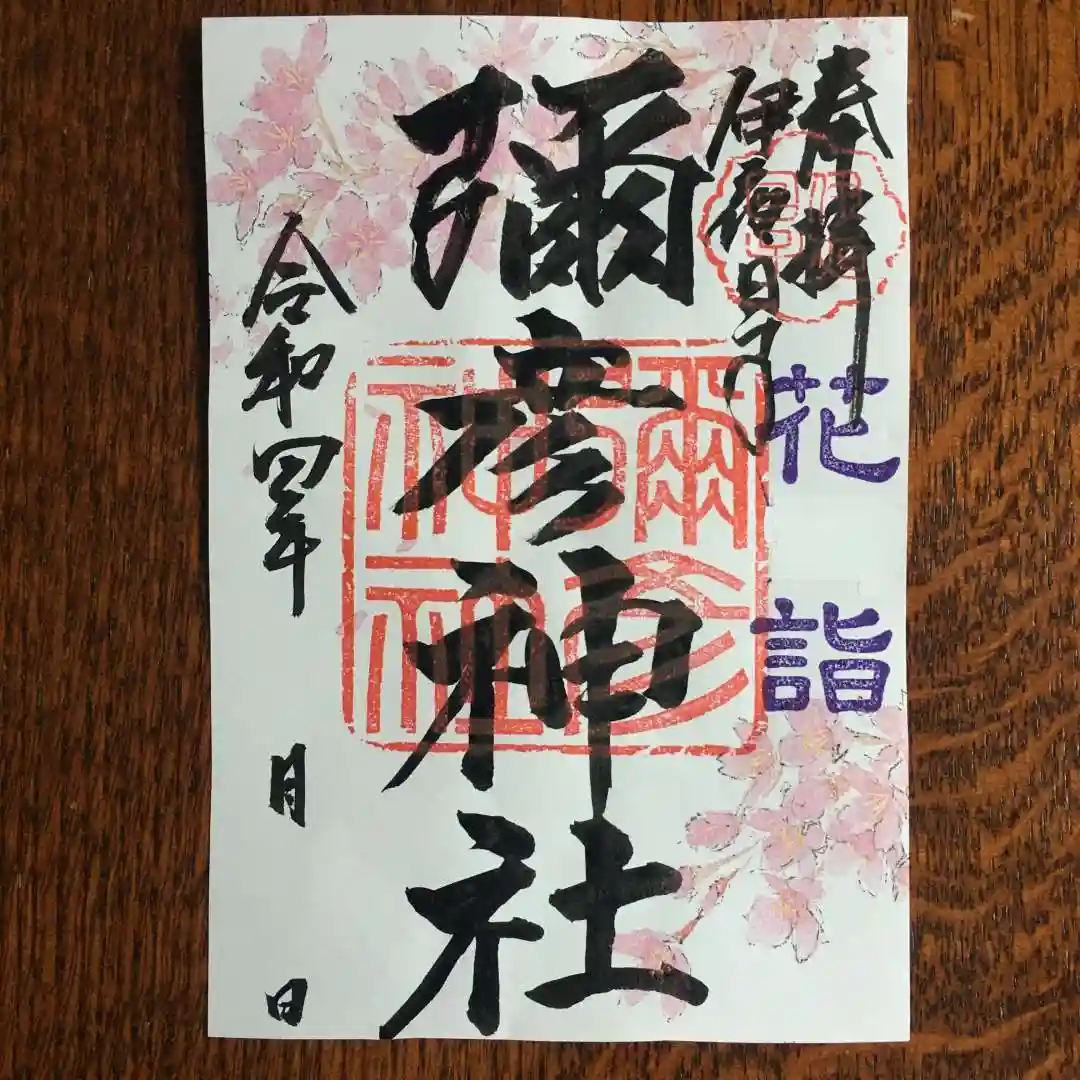 奉拝
伊夜日子
花詣
彌彦神社
彌彦
神社
令和四年 月 日